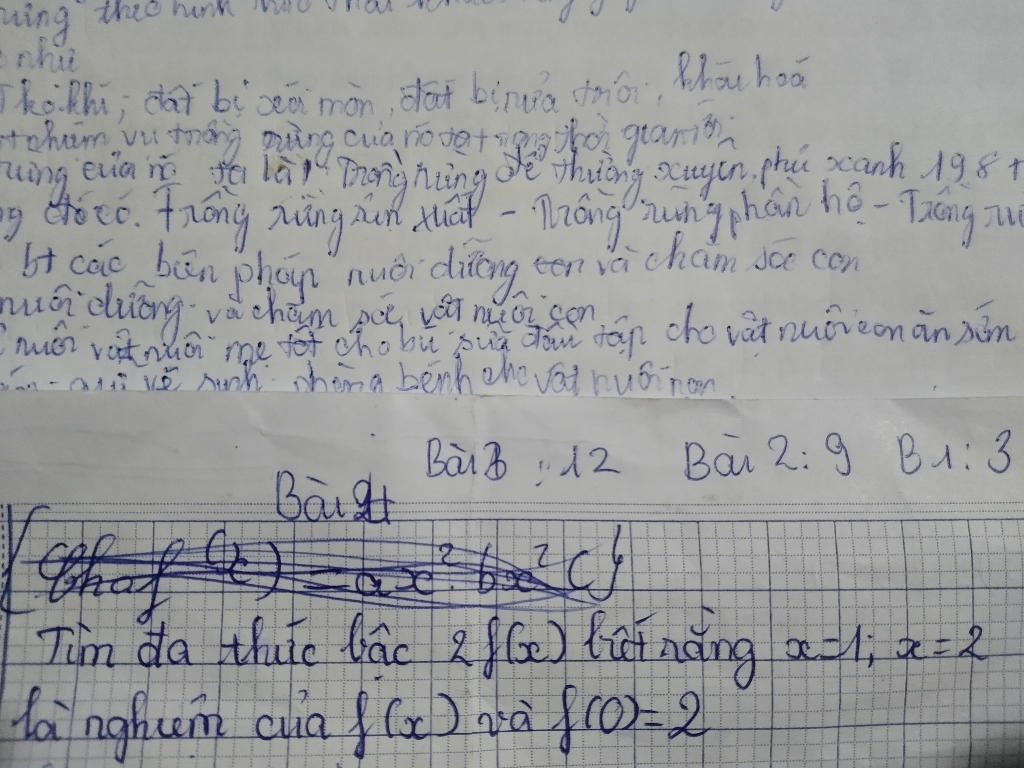 theo hình thức
như
khí; đất bị xói mòn, đất bị rửa trôi, khấu hoá
nhiệm vụ trồng rừng của nc ta trong thời gian tới
rừng của nc ta là! Trồng rừng để thường xuyên phủ xanh 198
đó có. Trồng rừng sản xuất - Trồng rừng phần hộ - Trồng
bt các biên pháp nuôi dưỡng và chăm sóc con
nuôi dưỡng và chăm sóc vật nuôi con
nuôi vật nuôi mẹ tốt cho bú sữa đầu tập cho vật nuôi con ăn sớm
vệ sinh phòng bệnh cho vật nuôi non
Bài 3 : 12 Bài 2 : 9 B1 : 3
Bài
Tìm đa thức bậc 2 f(x) biết rằng x=1; x=2
là nghiệm của f(x) và f(0)=2